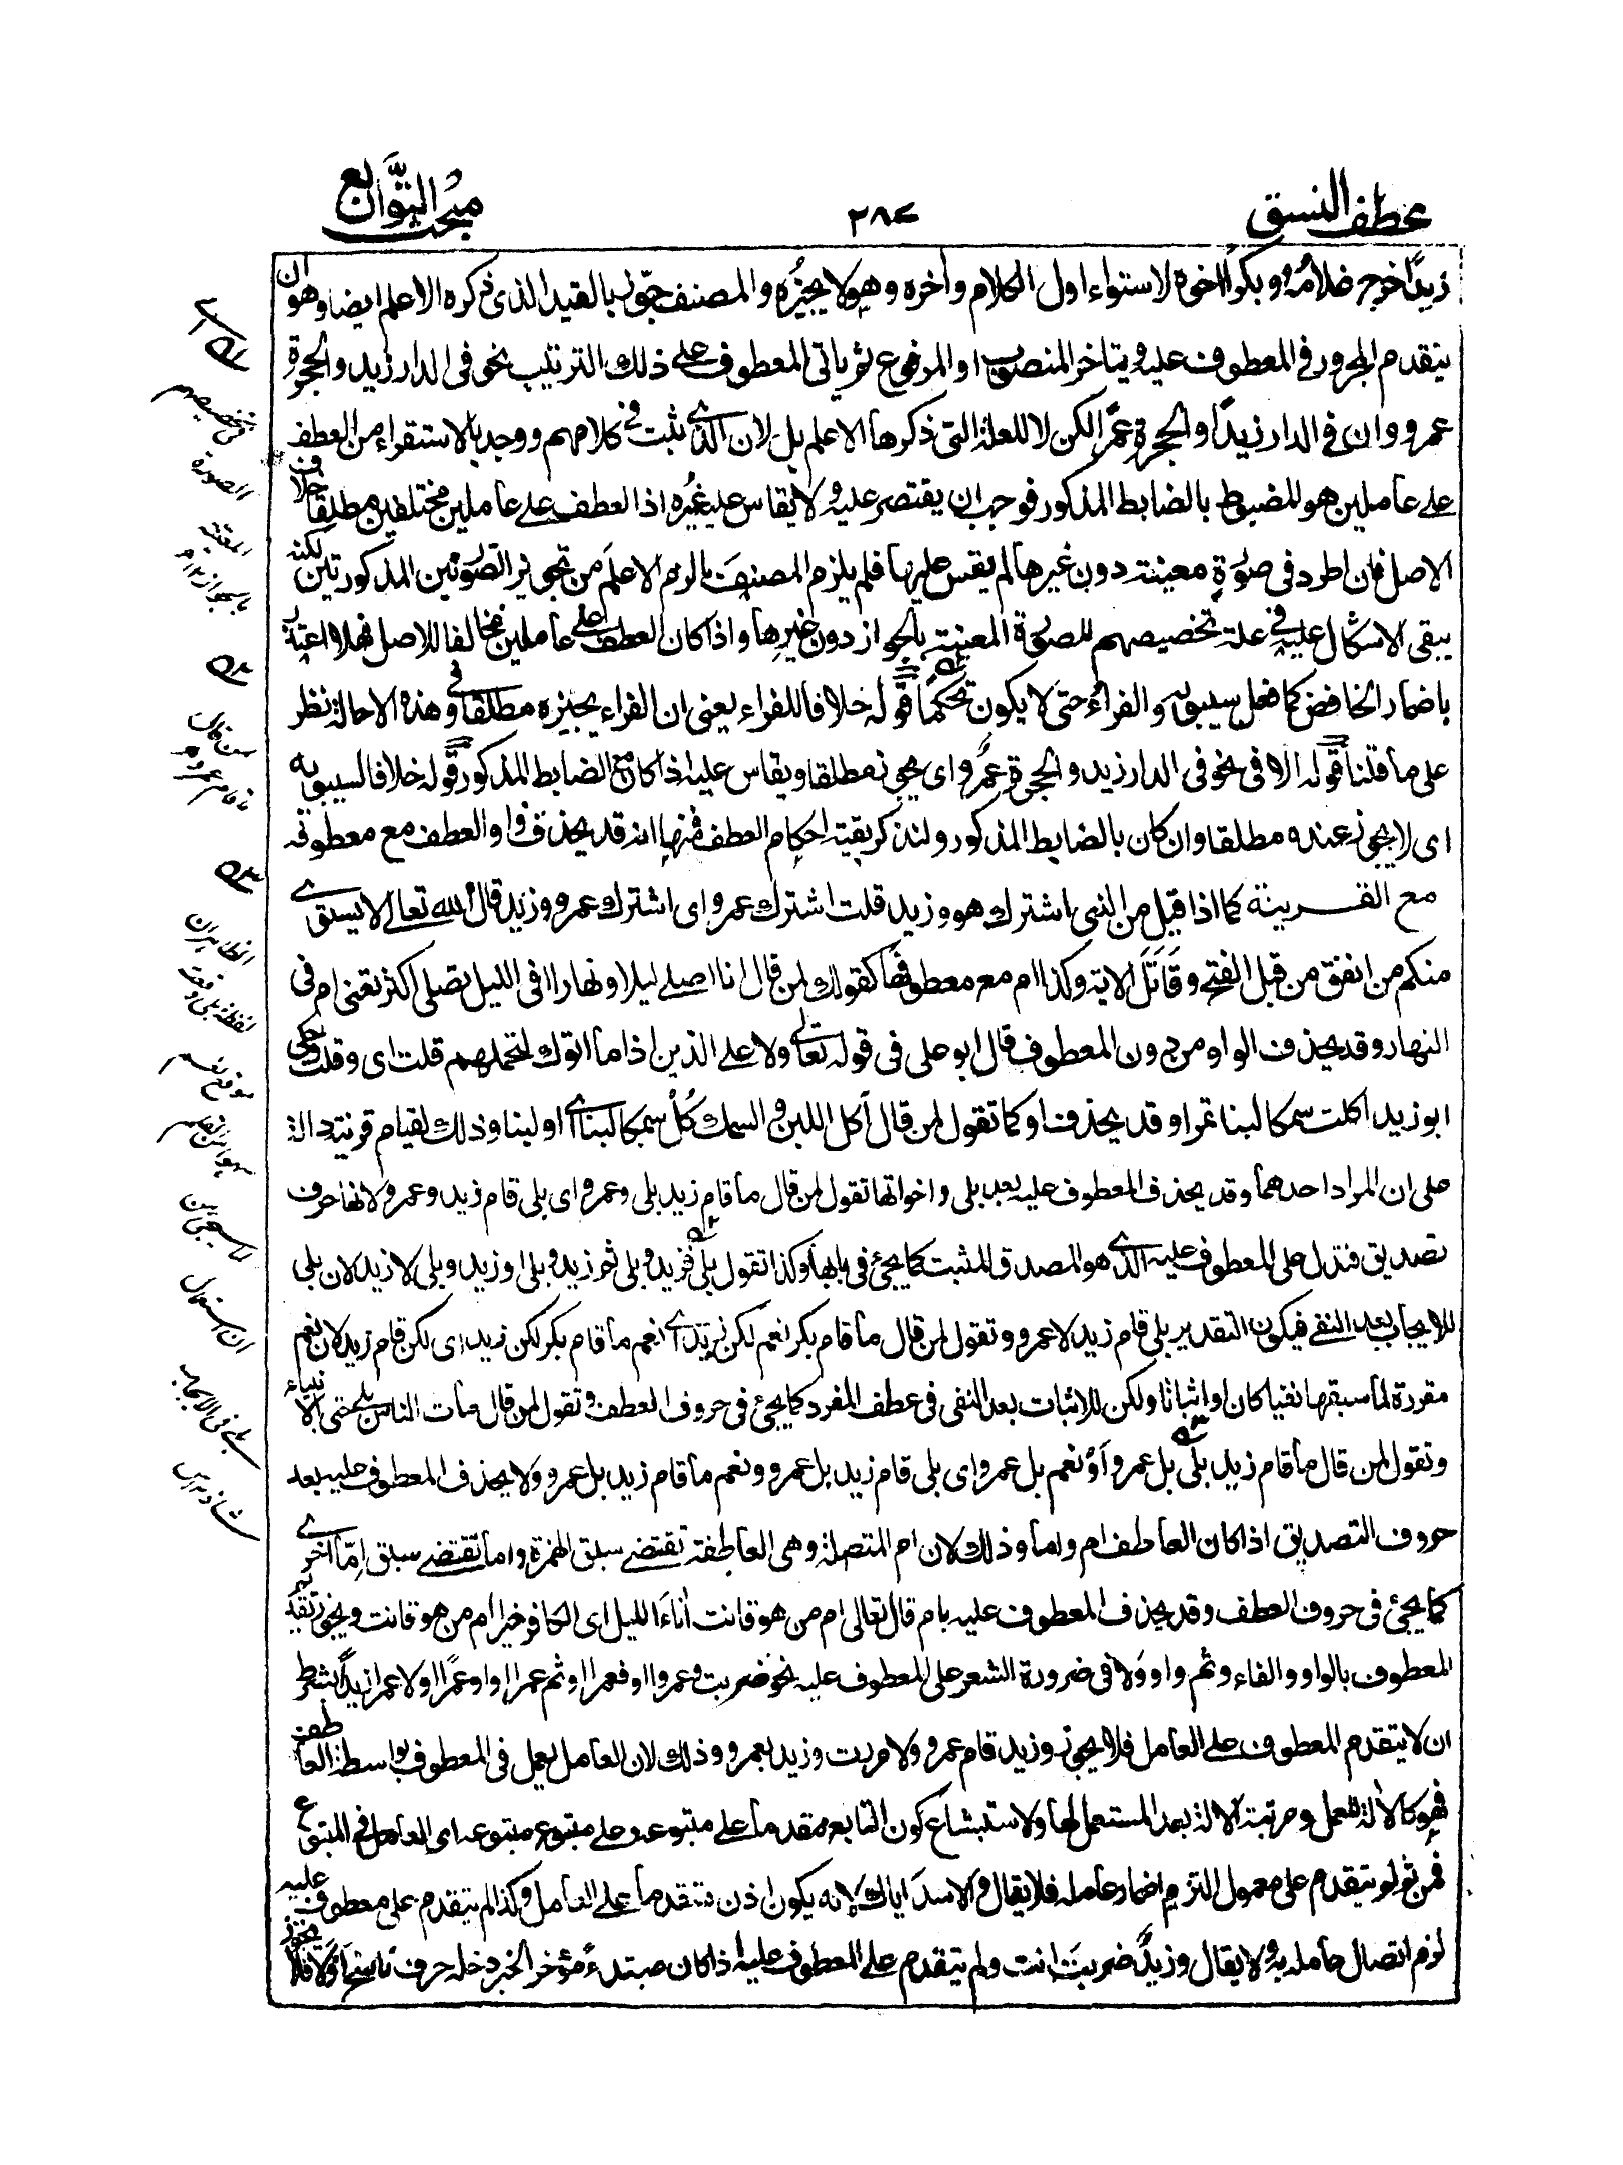 عطف النسق
٢٨٤
مبحث التوابع
زيدًا خرج غلامُه وبكرًا اخوه لاستواء اول الكلام وآخره وهو لا يجيزُه والمصنف جوّزه بالقيد الذى ذكره الاعلم ايضا وهو ان
يتقدم المجرور فى المعطوف عليه ويتاخر المنصوب او المرفوع ثم ياتى المعطوف على ذلك الترتيب نحو فى الدار زيد والحجرة
عمرو وان فى الدار زيدًا والحجرة عمرًا لكن لا للعلة التى ذكرها الاعلم بل لان الذى ثبت فى كلامهم ووجد بالاستقراء من العطف
على عاملين هو المضبوط بالضابط المذكور فوجب ان يقتصر عليه ولا يقاس عليه غيره اذ العطف على عاملين مختلفين مطلقا خلاف
الاصل فان اطرد فى صورة معينة دون غيرها لم يقس عليها فلم يلزم المصنف ما لزم الاعلم من تجويز الصورتين المذكورتين لكنه
يبقى الاشكال عليه فى علة تخصيصهم للصورة المعينة بالجواز دون غيرها واذا كان العطف على عاملين مخالفا للاصل فهلا اعتبر
باضمار الخافض كما فعل سيبويه والفراء حتى لا يكون تحكما قوله خلافا للفراء يعنى ان الفراء يجيزه مطلقا وفى هذه الاحالة نظر
على ما قلنا قوله الا فى نحو فى الدار زيد والحجرة عمرو اى يجوز مطلقا ويقاس عليه اذا كان مع الضابط المذكور قوله خلافا لسيبويه
اى لا يجوز عنده مطلقا وان كان بالضابط المذكور ولنذكر بقية احكام العطف فمنها انه قد يحذف واو العطف مع معطوفه
مع القرينة كما اذا قيل من الذى اشترك هو وزيد قلت اشترك عمرو اى اشترك عمرو وزيد قال الله تعالى لا يستوى
منكم من انفق من قبل الفتح وقَاتَلَ الاية وكذا ام مع معطوفها كقولك لمن قال انا اصلى ليلا ونهارا افى الليل تصلى اكثر تعنى ام فى
النهار وقد يحذف الواو من دون المعطوف قال ابو على فى قوله تعالى ولا على الذين اذا ما اتوك لتحملهم قلت اى وقلت وحكى
ابو زيد اكلت سمكا لبنا تمرا وقد يحذف او كما تقول لمن قال آكل اللبن والسمك كُلْ سمكا لبنا اى او لبنا وذلك لقيام قرينة دالة
على ان المراد احدهما وقد يحذف المعطوف عليه بعد بلى واخواتها تقول لمن قال ما قام زيد بلى وعمرو اى بلى قام زيد وعمرو لانها حرف
تصديق فتدل على المعطوف عليه الذى هو المصدق المثبت كما يجئ فى بابها وكذا تقول بلى فزيد وبلى ثم زيد وبلى او زيد وبلى لا زيد لان بلى
للايجاب بعد النفى فيكون التقدير بلى قام زيد لا عمرو وتقول لمن قال ما قام بكر نعم لكن زيد اى نعم ما قام بكر لكن زيد اى لكن قام زيد لان نعم
مقررة لما سبقها نفيا كان او اثباتا ولكن للاثبات بعد النفى فى عطف المفرد كما يجئ فى حروف العطف وتقول لمن قال مات الناس بلى حتى الانبياء
وتقول لمن قال ما قام زيد بلى بل عمرو اَوْ نعم بل عمرو اى بلى قام زيد بل عمرو ونعم ما قام زيد بل عمرو ولا يحذف المعطوف عليه بعد
حروف التصديق اذا كان العاطف ام واما وذلك لان ام المتصلة وهى العاطفة تقتضى سبق الهمزة واما تقتضى سبق اِمّا اخرى
كما يجئ فى حروف العطف وقد يحذف المعطوف عليه بام قال تعالى ام من هو قانت آناء الليل اى الكافر خير ام من هو قانت ويجوز تقديم
المعطوف بالواو والفاء وثم واو ولا فى ضرورة الشعر على المعطوف عليه نحو ضربت وعمروا او فعمرا او ثم عمرا او او عمرًا او لا عمرا زيدًا بشرط
ان لا يتقدم المعطوف على العامل فلا يجوز وزيد قام عمرو ولا مررت وزيد بعمرو وذلك لان العامل يعمل فى المعطوف بواسطة العاطف
فهو كالآلة للعمل ومرتبة الآلة بعد المستعمل لها ولاستبشاع كون التابع مقدما على متبوعه وعلى متبوع متبوعه اى العامل فى المتبوع
فمن ثم لو يتقدم على معمول التزم اضمار عامله فلا يقال والاسدَ اياك لانه يكون اذن متقدما على العامل وكذا لم يتقدم على معطوف عليه
لزم اتصال عامله به ولا يقال وزيدٌ ضربتَ انت ولم يتقدم على المعطوف عليه اذا كان مبتدءً مؤخر الخبر دخله حرف ناسخ اوّلا فلا يجوز